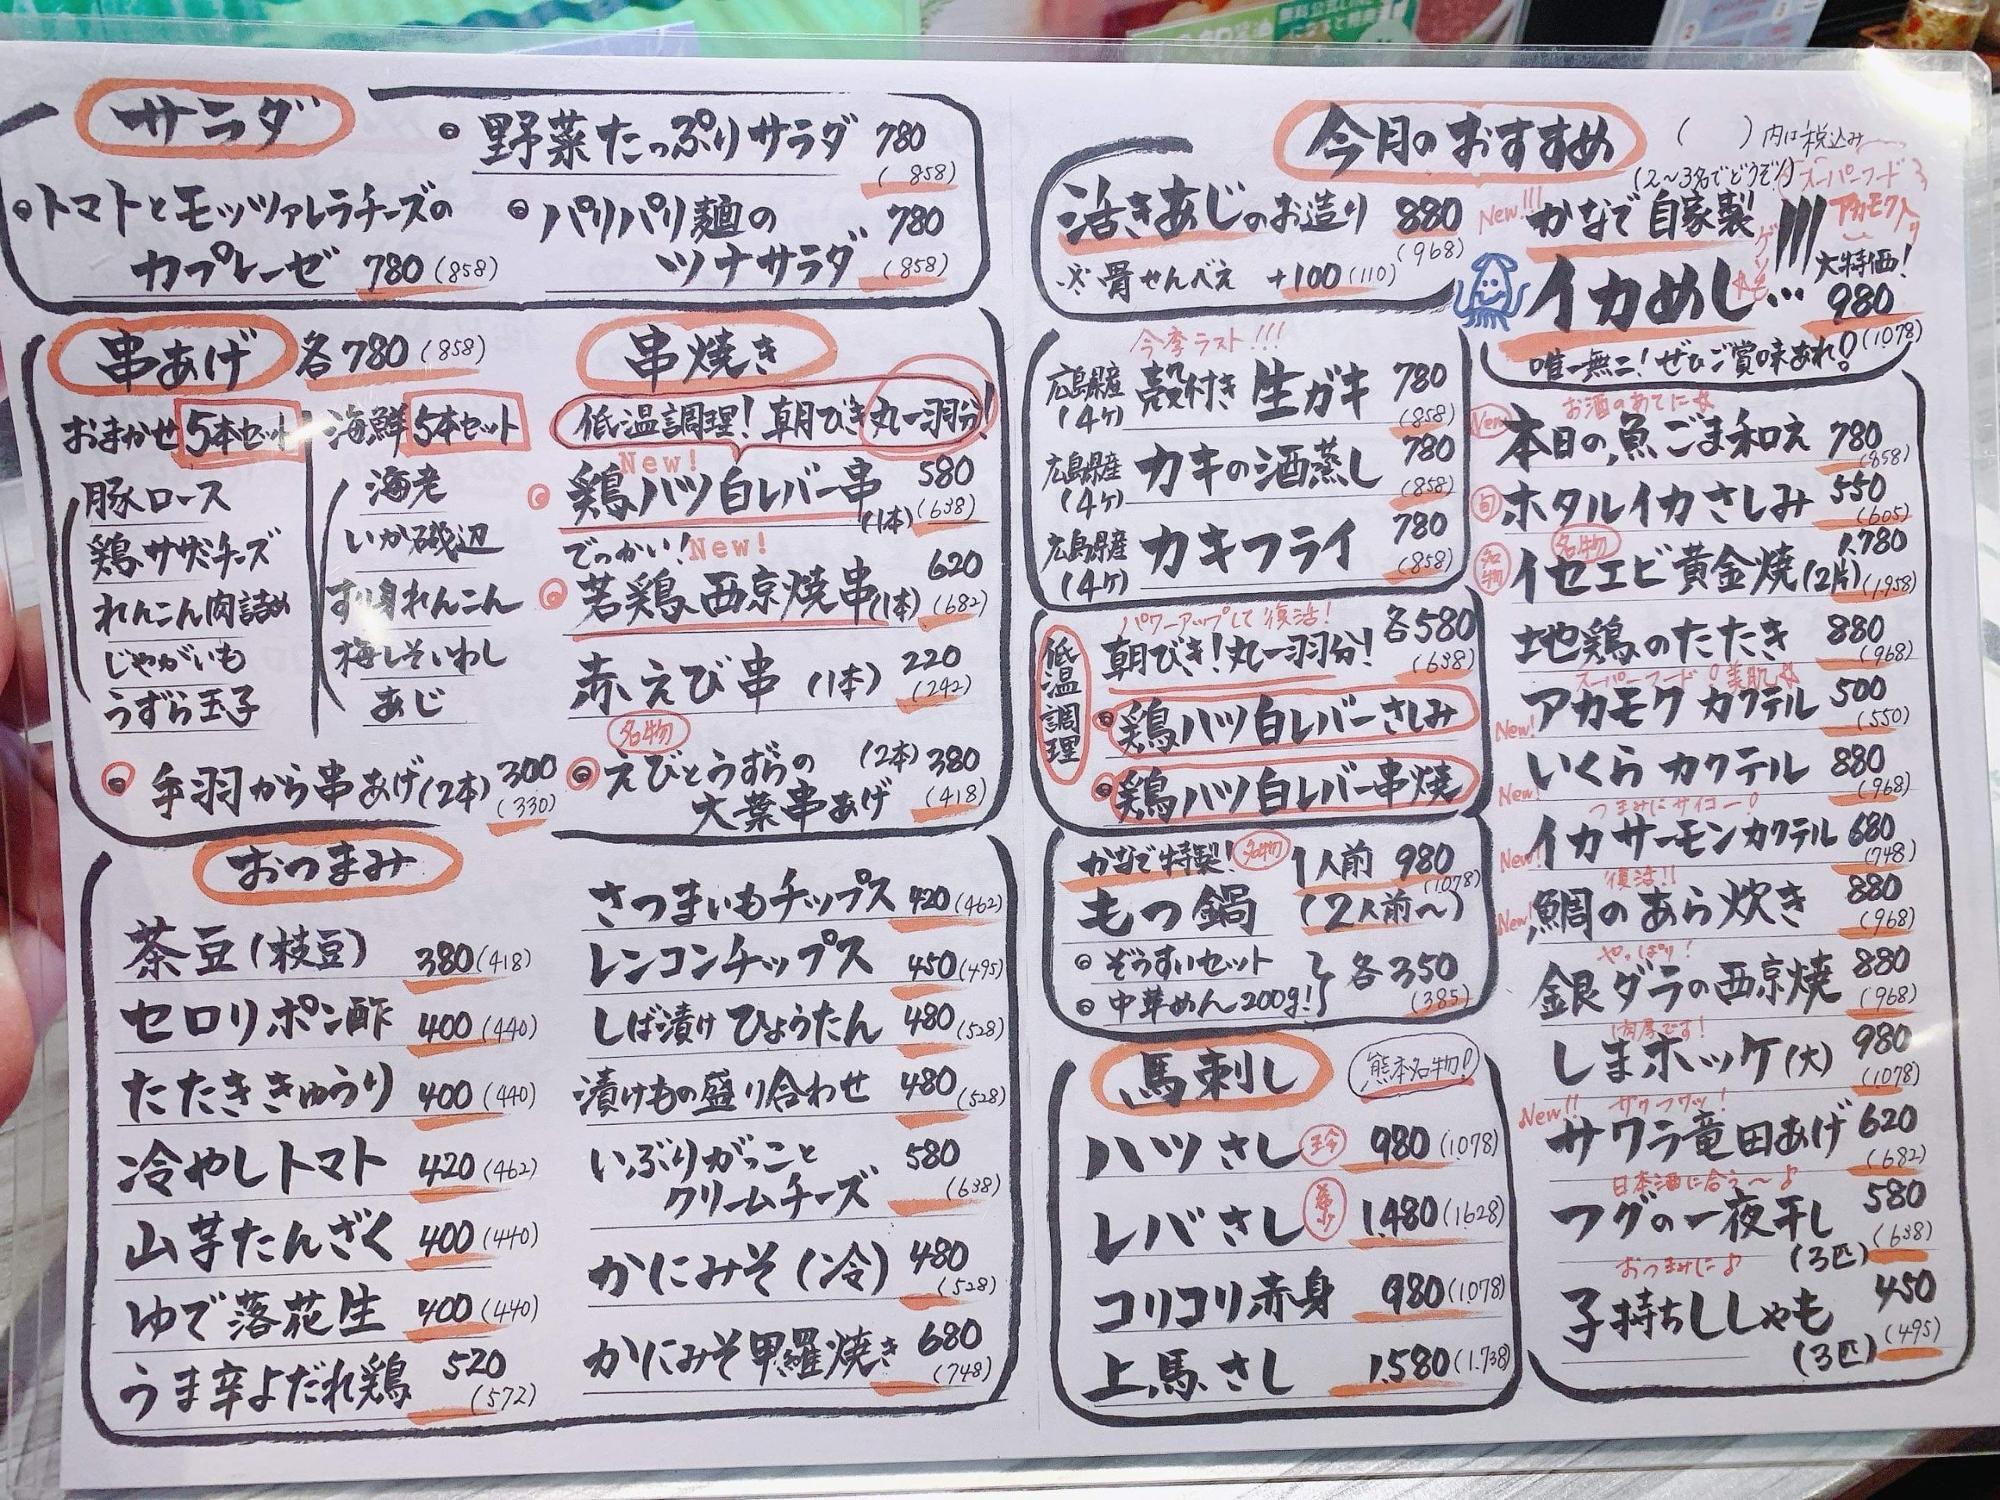 サラダ
野菜たっぷりサラダ 780
(858)
トマトとモッツァレラチーズの
カプレーゼ 780(858)
パリパリ麺の 780
ツナサラダ (858)
串あげ 各780(858)
おまかせ5本セット
豚ロース
鶏ササミチーズ
れんこん肉詰め
じゃがいも
うずら玉子
海鮮5本セット
海老
いか磯辺
すり身れんこん
梅しそいわし
あじ
手羽から串あげ(2本) 300
(330)
串焼き
低温調理!朝びき丸一羽分!
New!
鶏ハツ白レバー串 580
(1本)(638)
でっかい!New!
若鶏西京焼串(1本) 620
(682)
赤えび串(1本) 220
(242)
名物
えびとうずらの (2本) 380
大葉串あげ (418)
おつまみ
茶豆(枝豆) 380(418)
セロリポン酢 400(440)
たたききゅうり 400(440)
冷やしトマト 420(462)
山芋たんざく 400(440)
ゆで落花生 400(440)
うま辛よだれ鶏 520
(572)
さつまいもチップス 420(462)
レンコンチップス 450(495)
しば漬けひょうたん 480(528)
漬けもの盛り合わせ 480(528)
いぶりがっこと 580
クリームチーズ (638)
かにみそ(冷) 480
(528)
かにみそ甲羅焼き 680
(748)
今月のおすすめ ( )内は税込み
活きあじのお造り 880
(968)
※骨せんべえ +100(110)
(2~3名でどうぞ!)
スーパーフード
アカモク入り
New!!! かなで自家製
ゲソも
イカめし… 大特価!
980
(1078)
唯一無二!ぜひご賞味あれ!
今季ラスト!!!
広島県産 殻付き生ガキ 780
(4ケ) (858)
広島県産 カキの酒蒸し 780
(4ケ) (858)
広島県産 カキフライ 780
(4ケ) (858)
低温調理
パワーアップして復活!
朝びき!丸一羽分! 各580
(638)
鶏ハツ白レバーさしみ
鶏ハツ白レバー串焼
かなで特製!名物 1人前 980
(1078)
もつ鍋 (2人前~)
ぞうすいセット
中華めん200g! 各350
(385)
馬刺し 熊本名物!
ハツさし 珍 980(1078)
レバさし 希少 1.480(1628)
コリコリ赤身 980(1078)
上馬さし 1.580(1.738)
お酒のあてに☆
New 本日の魚ごま和え 780
(858)
旬 ホタルイカさしみ 550
(605)
名物
名物 イセエビ黄金焼(2片) 1.780
(1.958)
地鶏のたたき 880
(968)
スーパーフード!美肌☆
New! アカモクカクテル 500
(550)
New! いくらカクテル 880
(968)
つまみにサイコー!
New! イカサーモンカクテル 680
(748)
復活!!
New! 鯛のあら炊き 880
(968)
やっぱり!
銀ダラの西京焼 880
(968)
肉厚です!
しまホッケ(大) 980
(1078)
New!! ザクフワッ!
サワラ竜田あげ 620
(682)
日本酒に合う~♪
フグの一夜干し 580
(3匹) (638)
おつまみに♪
子持ちししゃも 450
(3匹) (495)